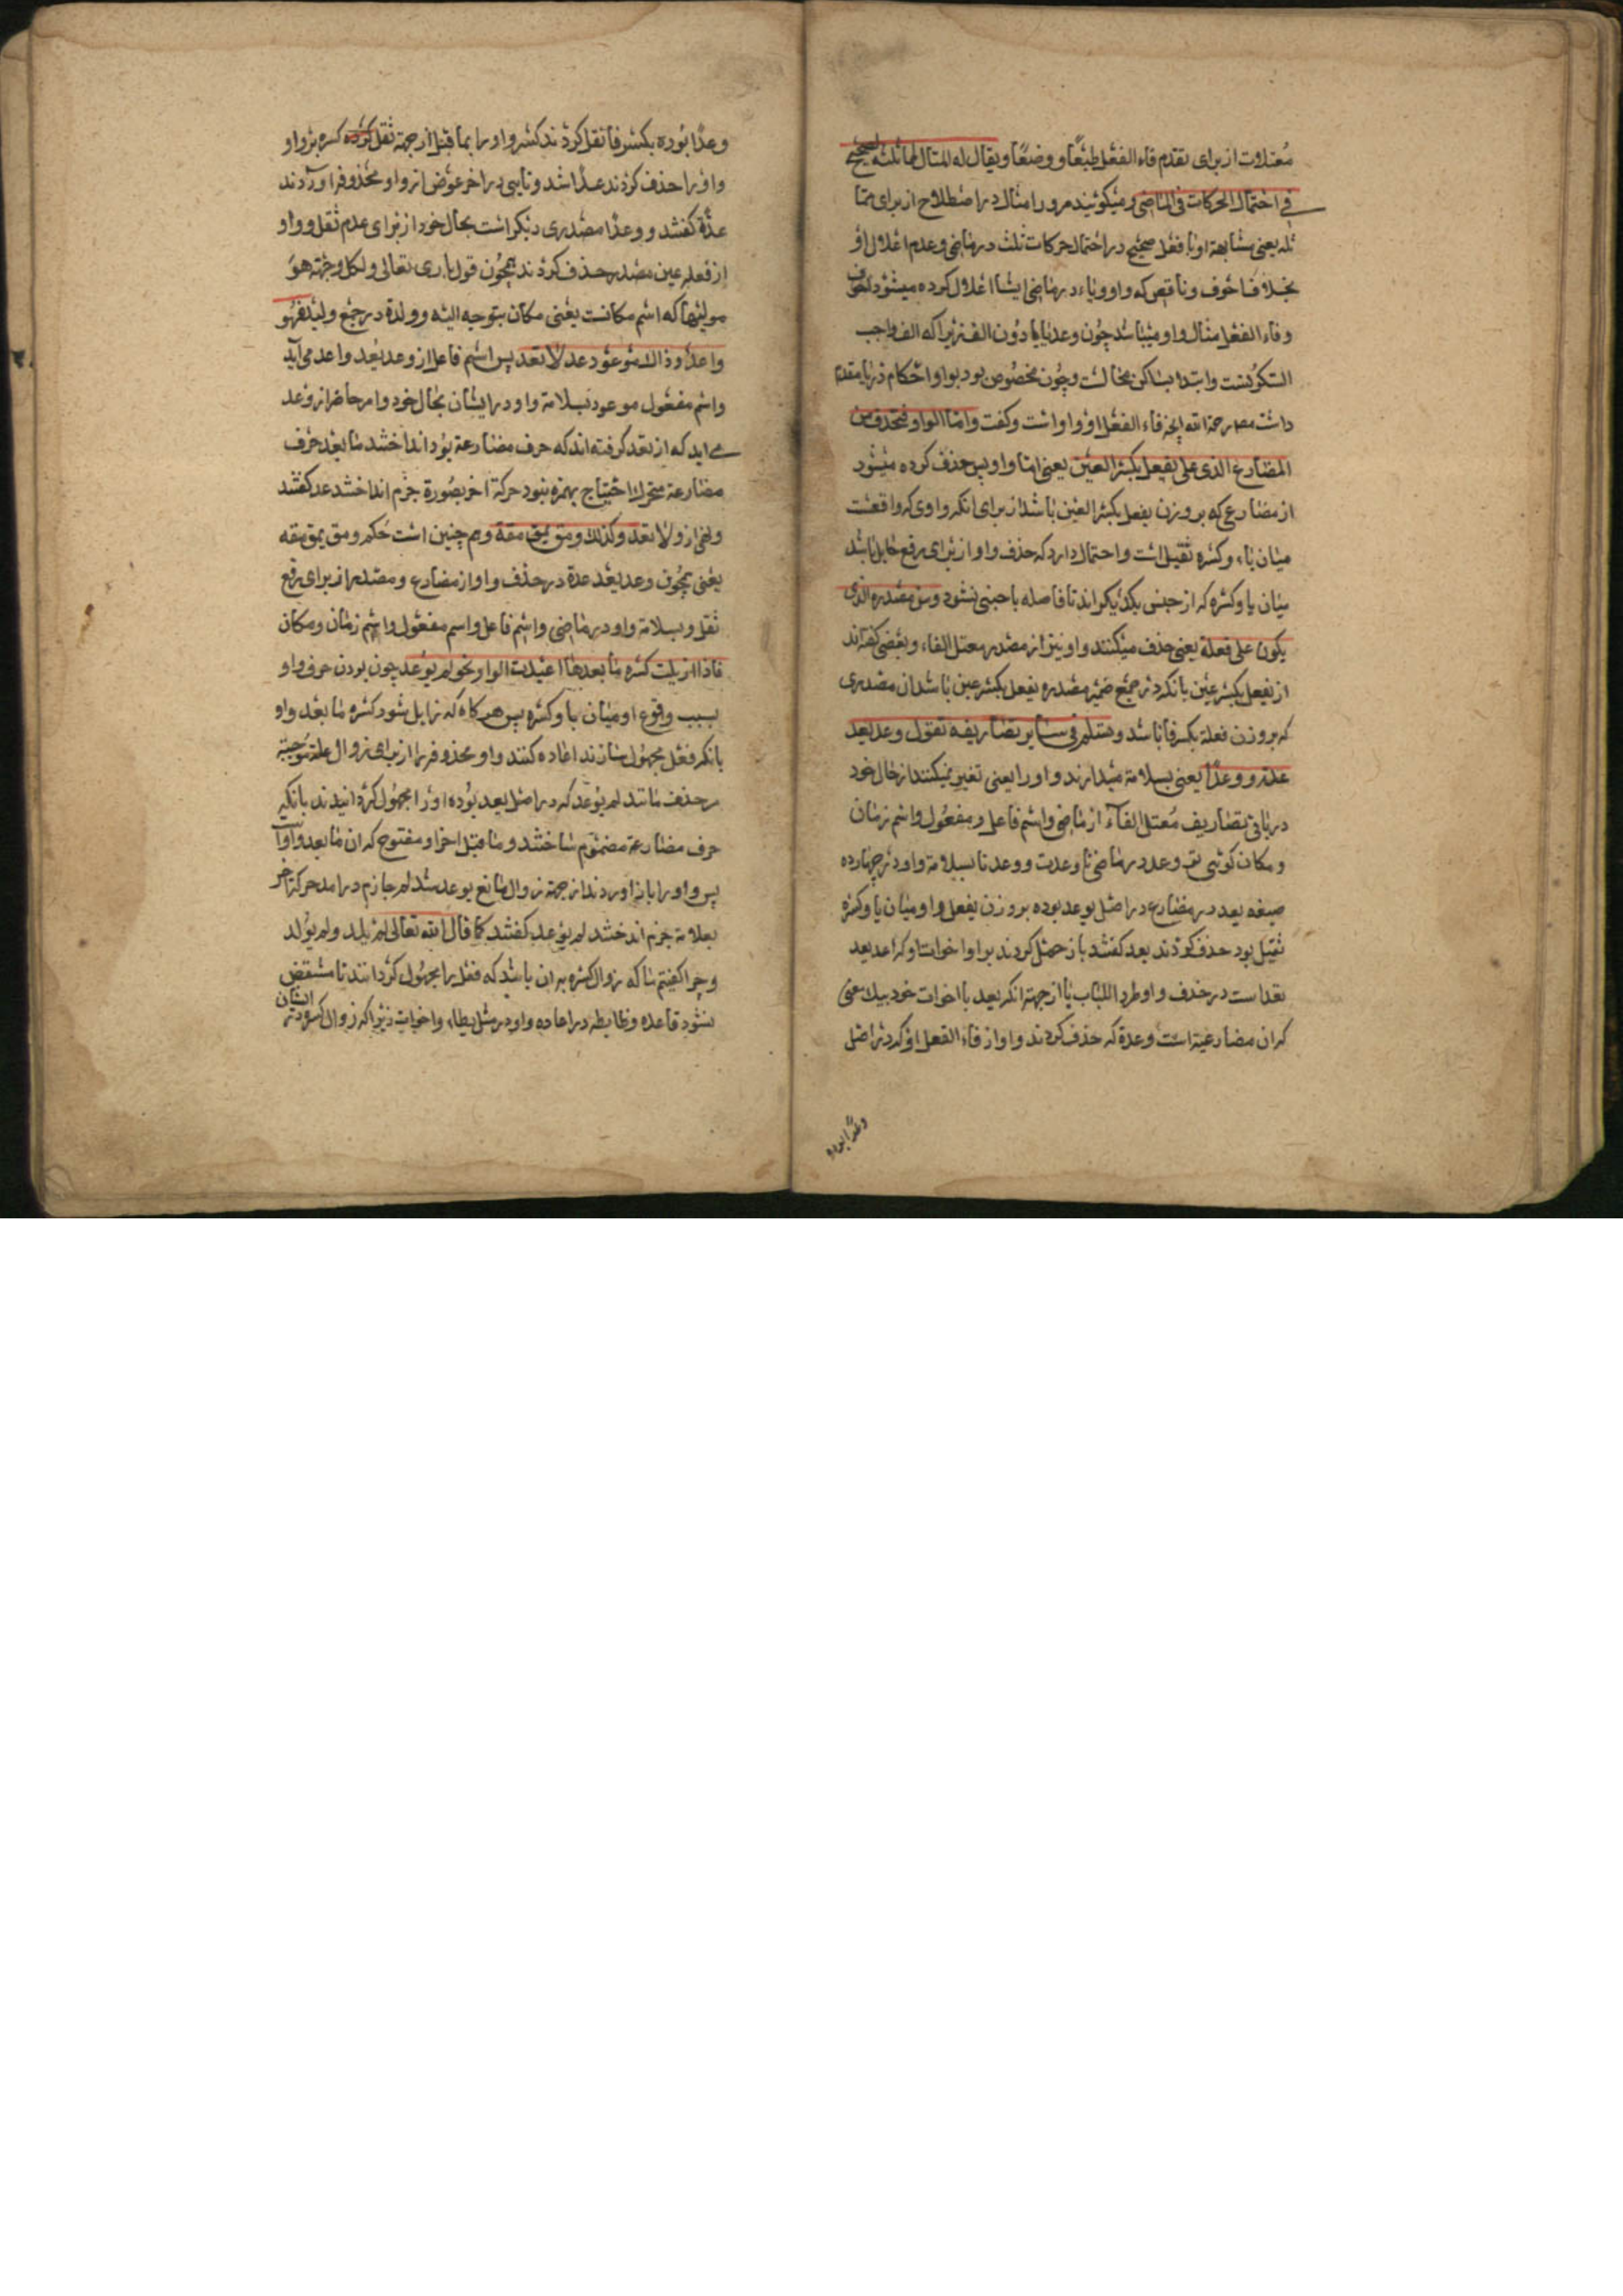 معتلات از برای تقدم فاء الفعل طبعًا و وضعًا و یقال له المثال لمماثلته الصحیح
فی احتمال الحرکات فی الماضی و میگویند مرورا مثال در اصطلاح از برای مما
ثله یعنی مشابهة او با فعل صحیح در احتمال حرکات ثلث در ماضی و عدم اعلال او
بخلاف اجوف و ناقص که واو و یاء در ماضی ایشا اعلال کرده میشود
و فاء الفعل مثال واو میباشد چون وعد یا یا دون الف زیرا که الف واجب
السکونست و ابتدا بساکن محالست و چون مخصوص بود بواو احکام
داشت مصر رحمة الله فاء الفعل او واو است و گفت و اما الواو فتحذف من
المضارع الذی علی یفعل بکسر العین یعنی اما واو پس حذف کرده میشود
از مضارعی که بر وزن یفعل بکسر العین باشد از برای انکه واوی که واقعست
میان یاء و کسره ثقیل است و احتمال دارد که حذف واو از برای رفع
میان یا و کسره که از جنس یکدیگراند تا فاصله باجنبی نشود و من مصدره الذی
یکون علی فعلة یعنی حذف میکنند واو نیز از مصدر معتل الفاء و بعضی گفته‌اند
از یفعل بکسر عین بانکه در جمع ضمیر مصدره یفعل بکسر عین باشد ان مصدری
که بر وزن فعلة بکسر فا باشد و تسلم فی سایر تصاریفه تقول وعد یعد
عدة و وعدًا یعنی بسلامة میدارند واو را یعنی تغیر نمیکنند از حال خود
در باقی تصاریف معتل الفاء از ماضی و اسم فاعل و مفعول و اسم زمان
و مکان کوئی تو وعد در ماضی تا وعدت و وعدنا بسلامة واو در چهارده
صیغه یعد در مضارع در اصل یوعد بوده بر وزن یفعل واو میان یا و کسره
ثقیل بود حذف کردند یعد گفتند باز حمل کردند بر او اخوات او که اعد نعد
تعد است در حذف واو طرد اللباب یا از جهة انکه یعد با اخوات خود بیک معنی
که ان مضارعیة است وعدة که حذف کردند واو از فاء الفعل او که در اصل
وعدًا بوده
وعدًا بوده بکسر فا نقل کردند کسر واو را بما قبل از جهة ثقل کسره بر واو
واو را حذف کردند عدًا شد و تایی در اخر عوض از واو محذوفه اوردند
عدة گفتند و وعدًا مصدری دیگر است بحال خود از برای عدم ثقل و واو
از فعله عین مصدر حذف کردند همچون قول باری تعالی و لکل وجهة هو
مولیها که اسم مکانست یعنی مکان یتوجه الیه و ولدة در جمع ولید فهو
واعد و ذالک موعود عد لا تعد پس اسم فاعل از وعد یعد واعد می آید
و اسم مفعول موعود بسلامة واو در ایشان بحال خود و امر حاضر از وعد
می اید که از تعد گرفته اند که حرف مضارعة بود انداختند ما بعد حرف
مضارعة متحرک احتیاج بهمزه نبود حرکة اخر بصورة جزم انداختند عد گفتند
و نهی از و لا تعد و کذلک ومق یمق مقة و هم چنین است حکم ومق یمق مقه
یعنی همچون وعد یعد عدة در حذف واو از مضارع و مصدر از برای رفع
ثقل و بسلامة واو در ماضی و اسم فاعل و اسم مفعول و اسم زمان و مکان
فاذا ازیلت کسره ما بعدها اعیدت الواو نحو لم یوعد چون بودن حرف واو
بسبب وقوع او میان یا و کسره پس هر کاه که زایل شود کسره ما بعد واو
بانکه فعل مجهول سازند اعاده کنند واو محذوفه را از برای زوال علة موجبة
حذف مانند لم یوعد که در اصل یعد بوده او را مجهول گردانیدند بانکه
حرف مضارعة مضموم ساختند و ما قبل اخر او مفتوح که ان ما بعد واو
پس واو را باز اوردند از جهة زوال مانع یوعد شد لم جازم در امد حرکة اخر
بعلامة جزم انداختند لم یوعد گفتند کما قال الله تعالی لم یلد و لم یولد
و چرا گفتیم ما که زوال کسره بر ان باشد که فعل را مجهول گردانند تا منتقض
نشود قاعده و ضابطه در اعاده واو در مثل یطاء و اخوات زیرا که زوال کسره در ایشان